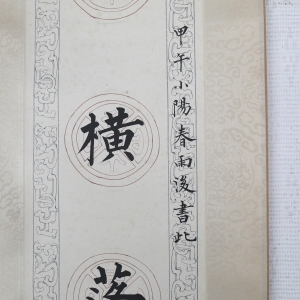 甲午小陽春雨後書此
橫
落